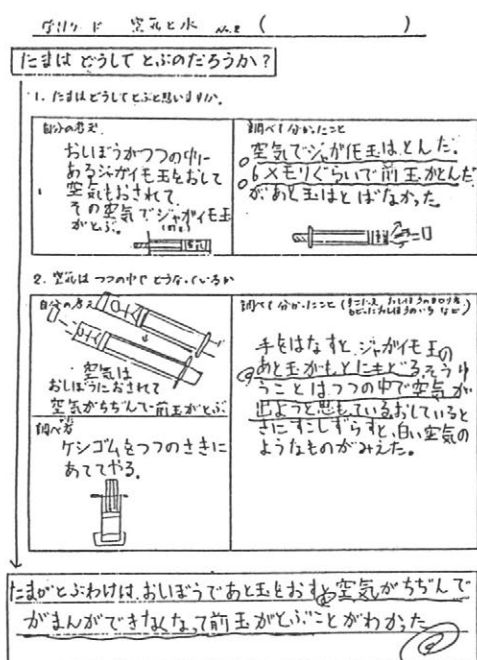 空気と水 No.2 ( )
たまは どうして とぶのだろうか?
1. たまはどうしてとぶと思いますか。
自分の考え
おしぼうがつつの中に
あるジャガイモ玉をおして
空気もおされて
その空気でジャガイモ玉
がとぶ。
調べて分かったこと
空気でジャガイモ玉はとんだ。
6メモリぐらいで前玉がとんだ
が、あと玉はとばなかった。
2. 空気は つつの中で どうなっているか
自分の考え
空気は
おしぼうにおされて
空気がちぢんで前玉がとぶ
調べ方
ケシゴムをつつのさきに
あててやる。
調べて分かったこと
手をはなすと、ジャガイモ玉の
あと玉がもとにもどる。そうゆ
うことはつつの中で空気が
出ようと思もっている。おしていると
きにすこしずらすと、白い空気の
ようなものがみえた。
たまがとぶわけは、おしぼうであと玉をおすと空気がちぢんで
がまんができなくなって前玉がとぶことがわかった